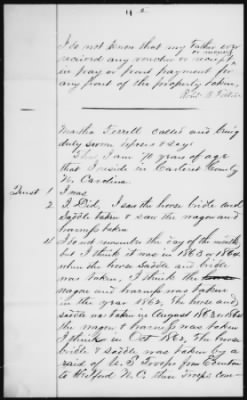 11 2
I do not know that my Father ever
received any voucher or receipt
or money
in pay or part payment for
any part of the property taken,
Martha Ferrell called and being
duly sworn deposes & says
That I am 70 years of age
that I reside in Carteret County
N. Carolina.
Quest 1 I was
2 I Did, I saw the horse bridle and
Saddle taken & saw the wagon and
harness taken
4 I do not remember the day of the month
but I think it was in 1863 or 1864
when the horse Saddle and bridle
was taken, I think the
wagon and harness was taken
in the year 1862, The horse and
saddle was taken in August 1863 or 1864
the wagon & harness was taken
I think in Oct 1862, The horse
bridle & saddle was taken by a
raid of U.S. Troops from
to N.C. Troops com-